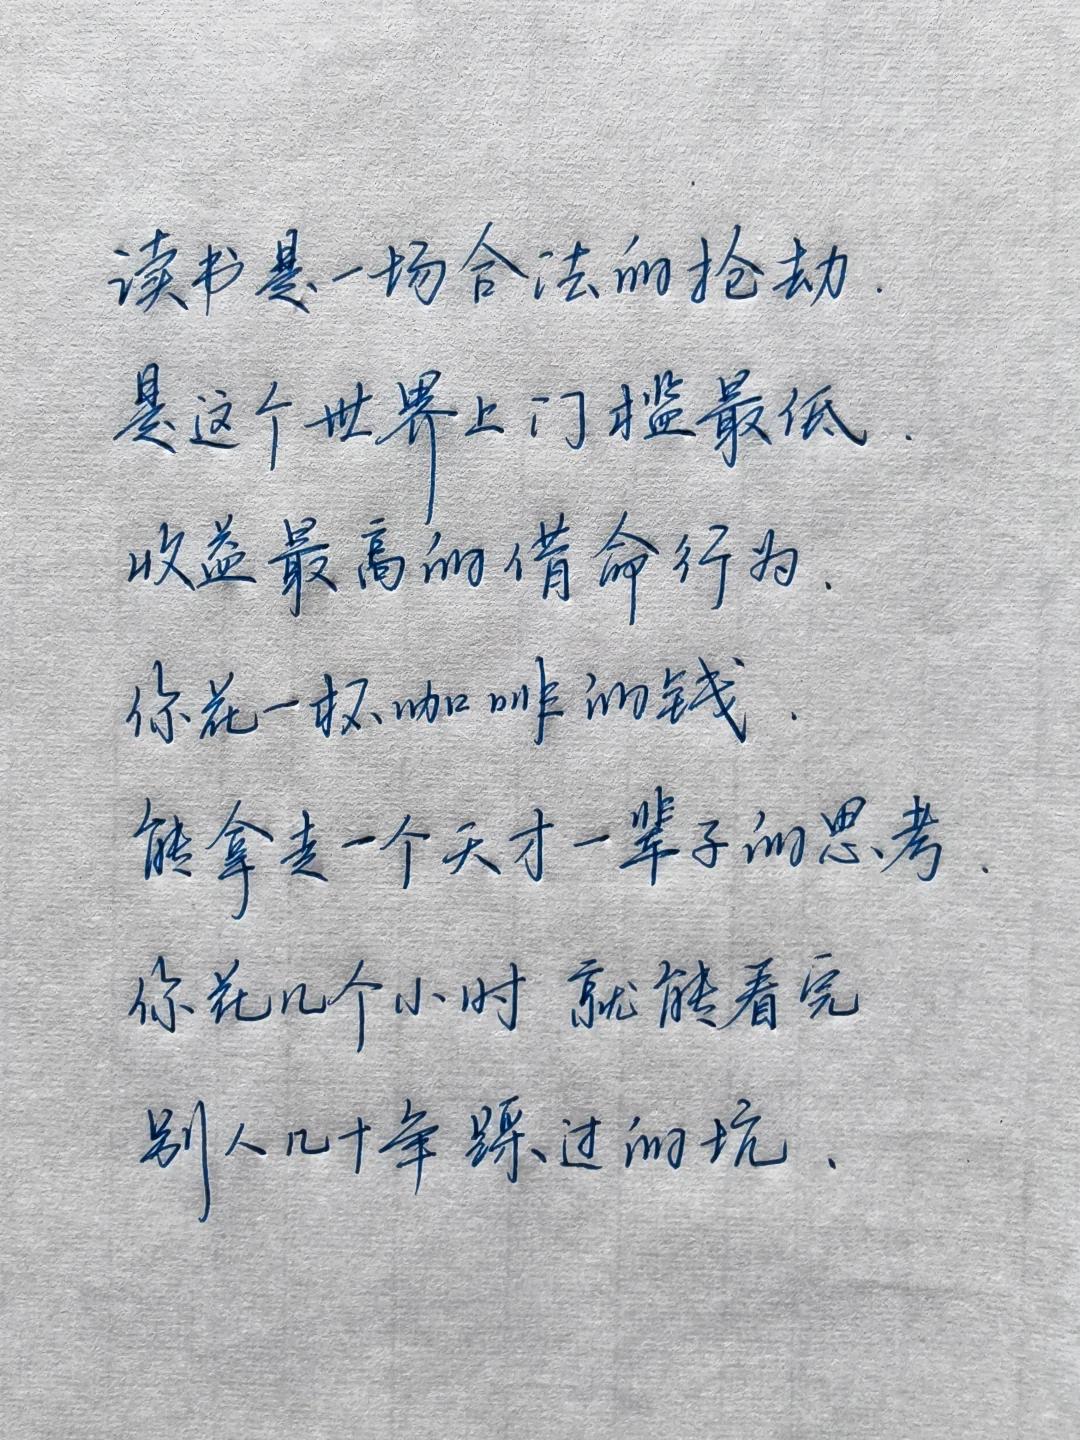 读书是一场合法的抢劫.
是这个世界上门槛最低.
收益最高的借命行为.
你花一杯咖啡的钱.
能拿走一个天才一辈子的思考.
你花几个小时 就能看完
别人几十年踩过的坑.